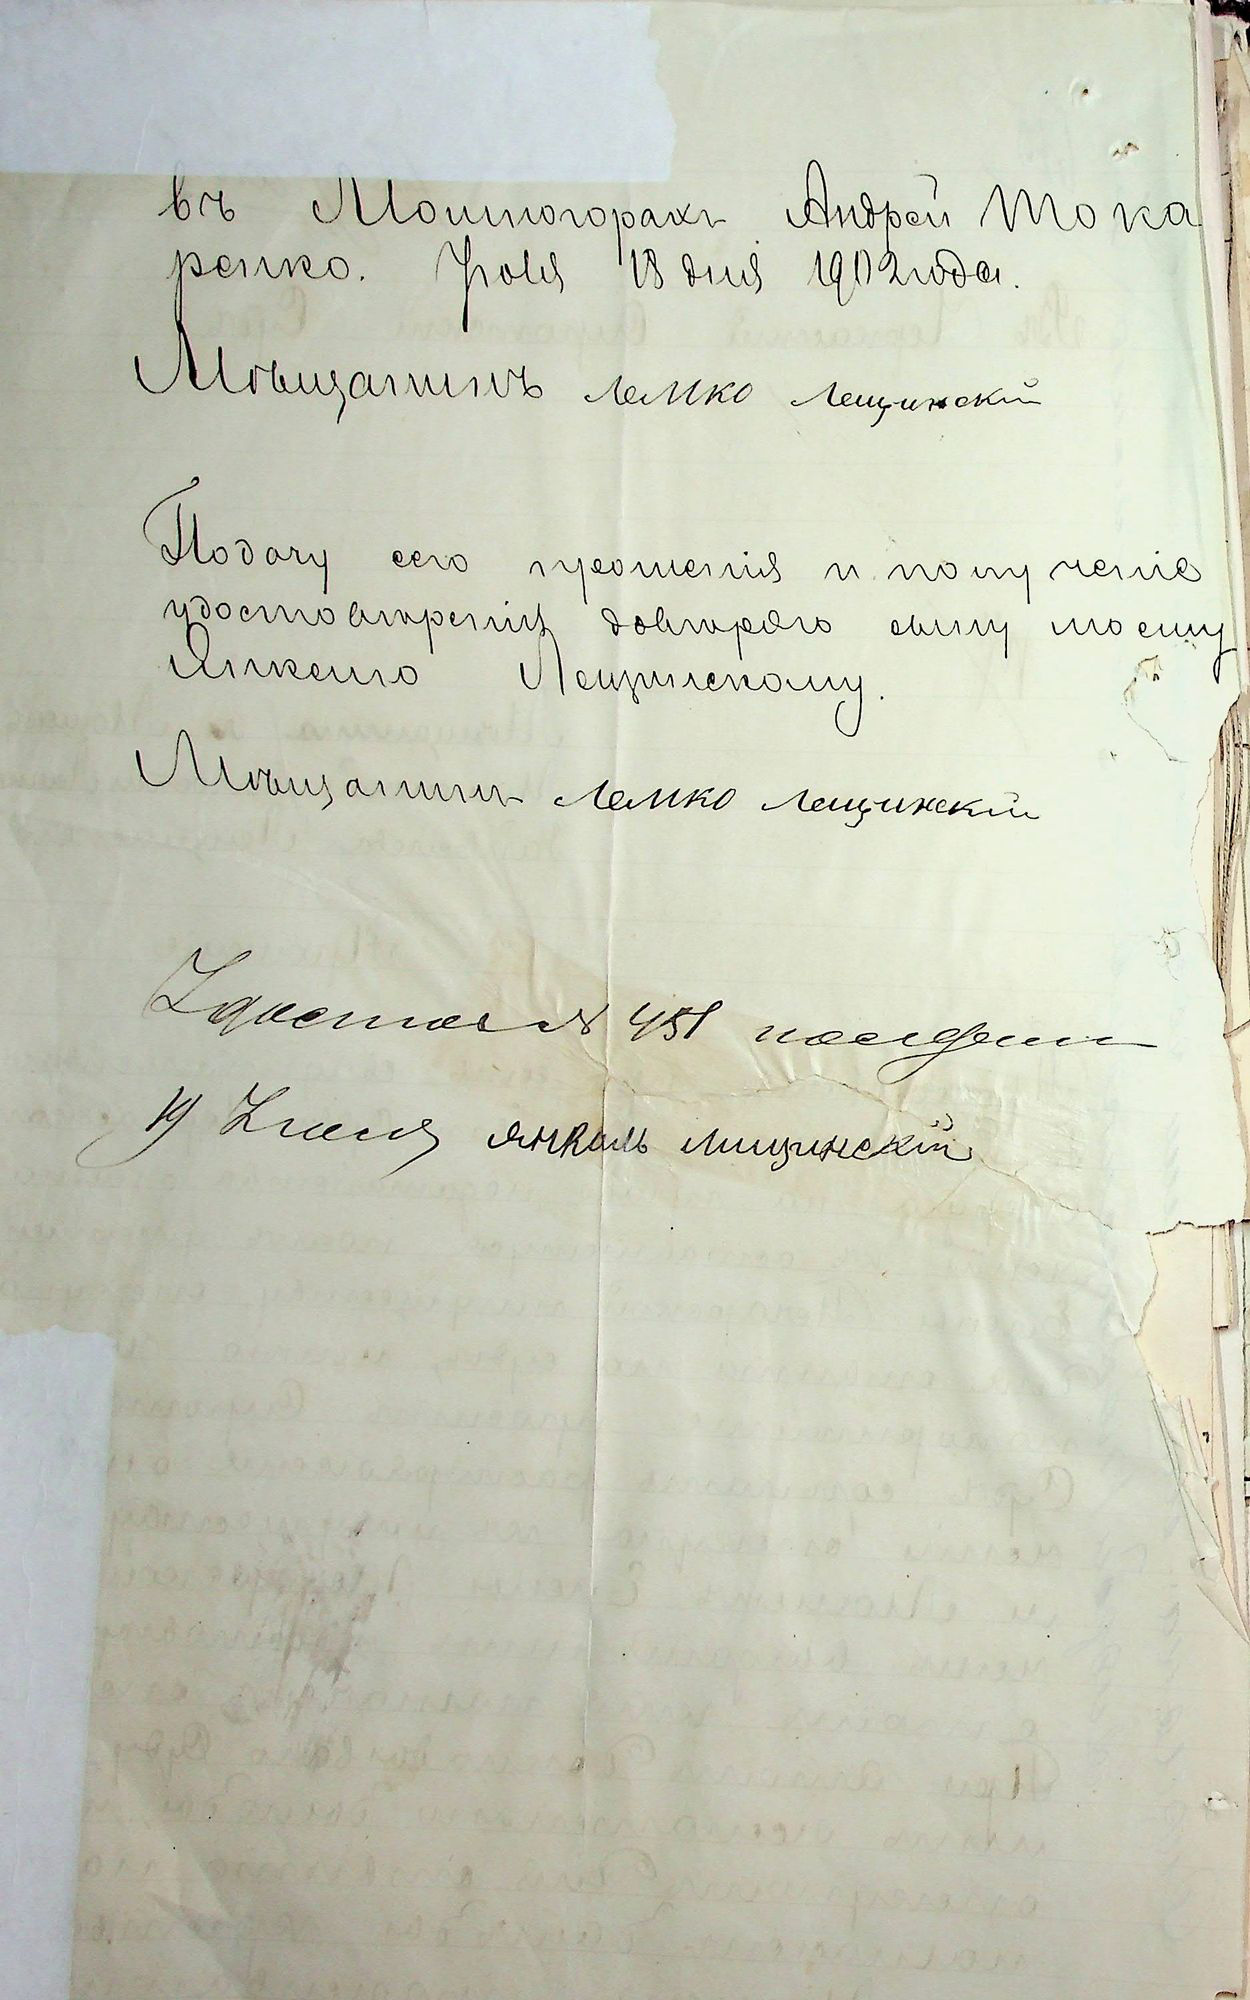 въ Мошногорахъ Андрей Тока
ренко. Іюля 18 дня 1902 года.
Мѣщанинъ Лемко Лещинскій
Подачу сего прошенія и полученіе
удостовѣренія довѣряю сыну моему
Янкелю Лещинскому.
Мѣщанинъ Лемко Лещинскій
Удостов № 451 получилъ
19 Іюля Янкель Лищинскій